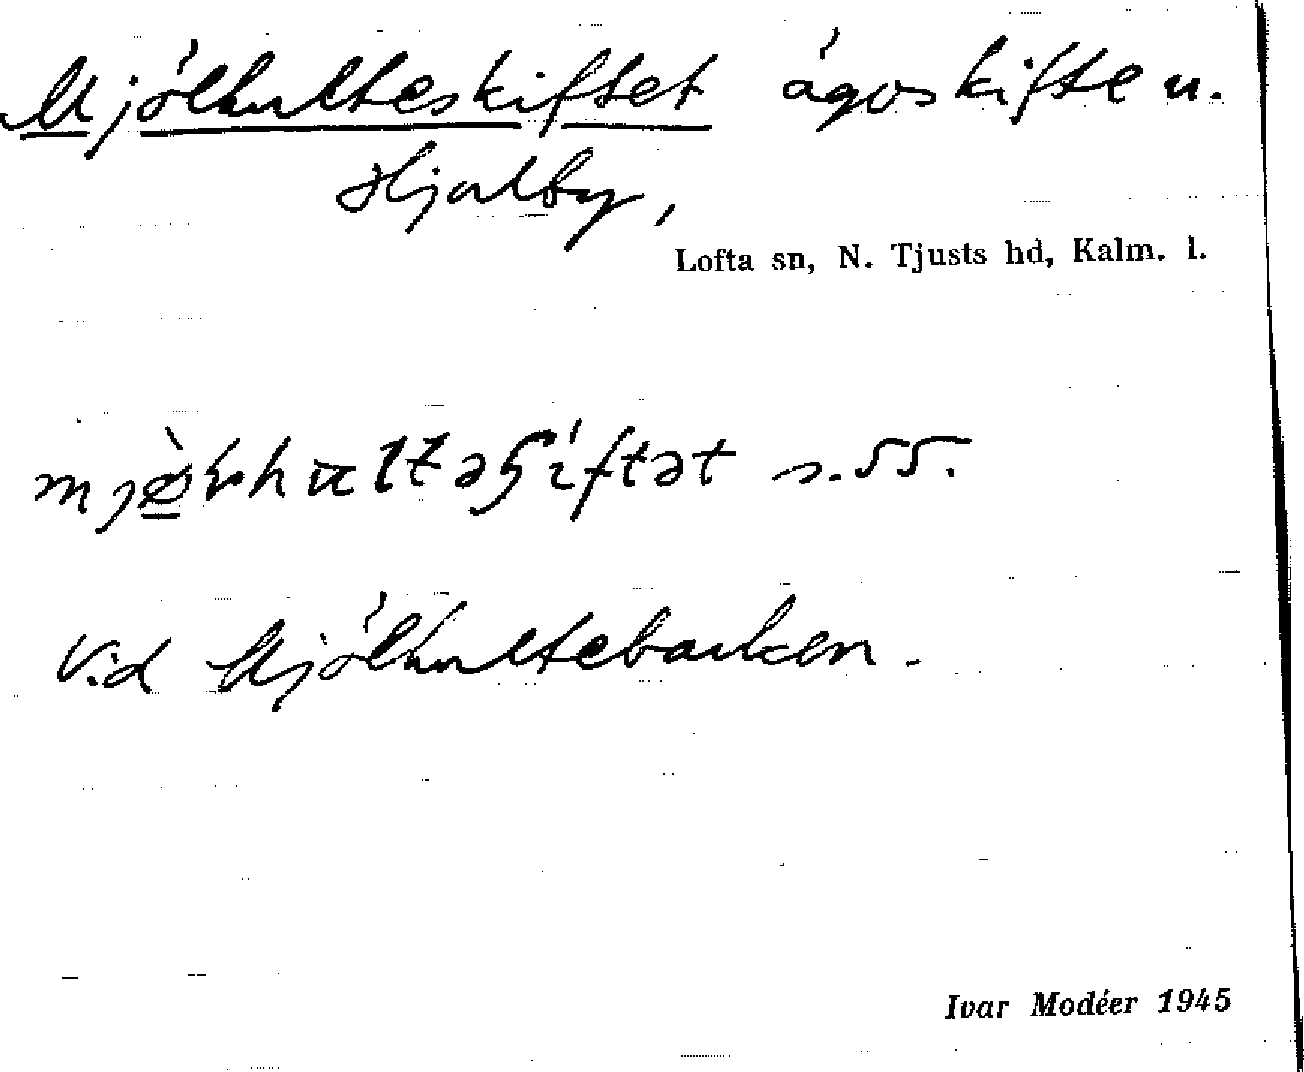 Mjölhulteskiftet ägoskifte u.
Hjalby,
Lofta sn, N. Tjusts hd, Kalm. l.
s. 55.
Vid Mjölhultebacken.
Ivar Modéer 1945